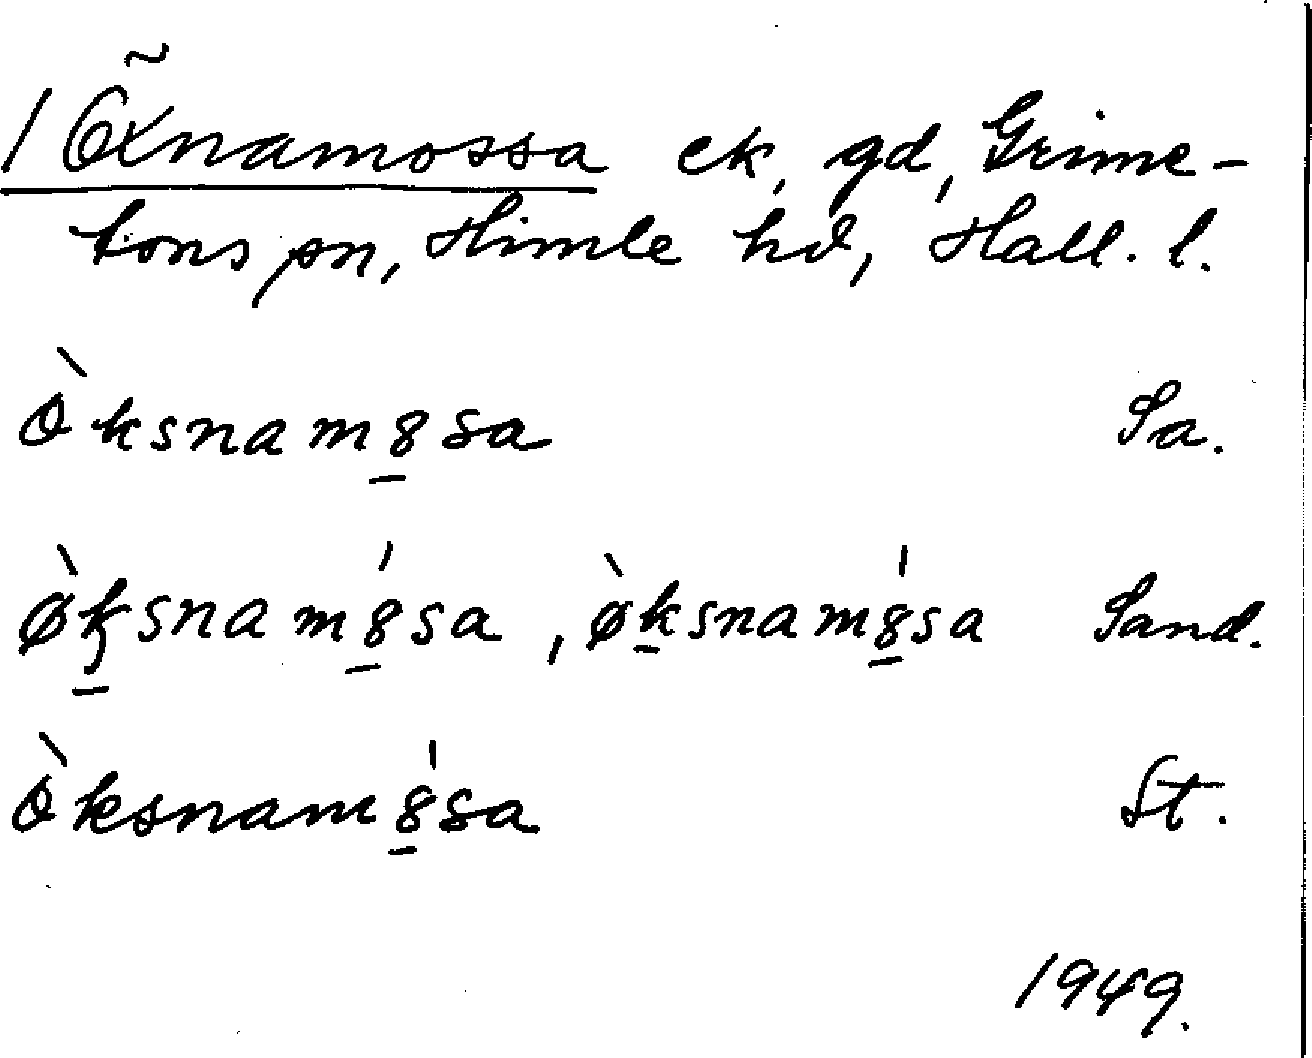 1 Öxnamossa ek, gd, Grime-
tons sn, Himle hd, Hall. l.
ò̀ksnam8̲sa Sa.
ø̀k̲snam8̲́sa, ø̀k̲snam8̲́sa Sand.
ò̀ksnam8̲́sa St.
1949.